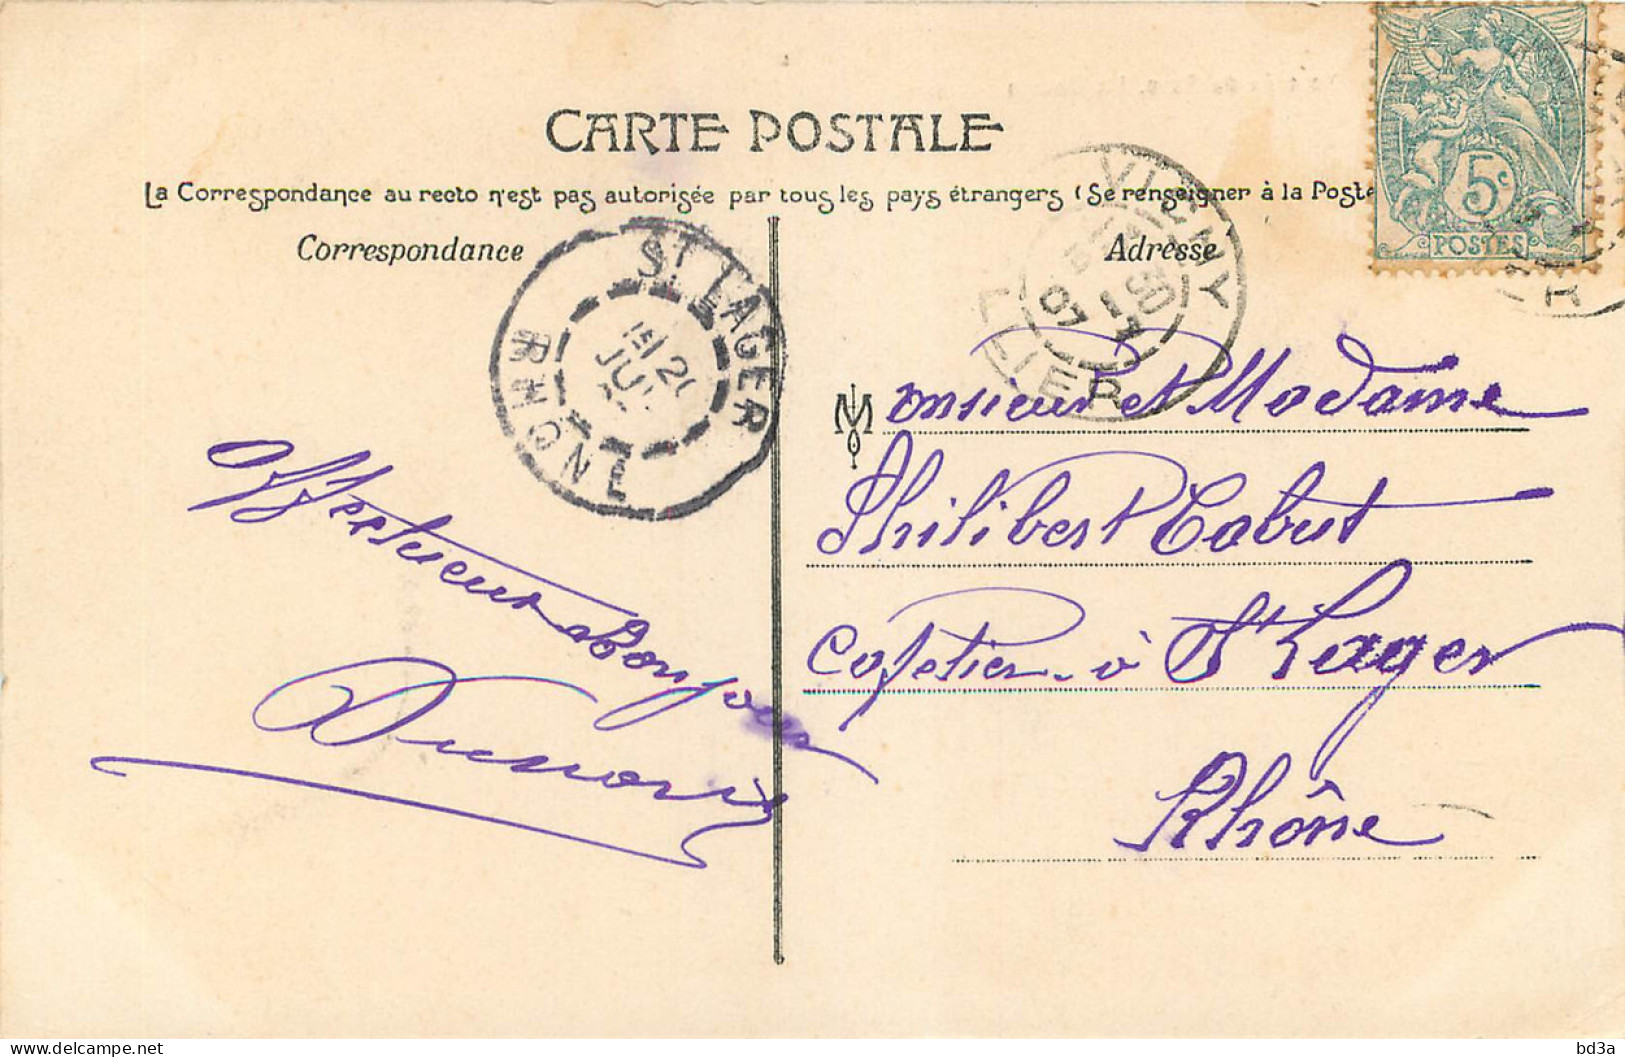 CARTE POSTALE
La Correspondance au recto n'est pas autorisée par tous les pays étrangers (Se renseigner à la Poste
Correspondance
Adresse
5c
POSTES
ST LAGER
RHONE
VICHY
ALLIER
Monsieur et Madame
Philibert Cabut
Cafetier à St Lager
Rhône
Affectueux Bonjour
bd3a